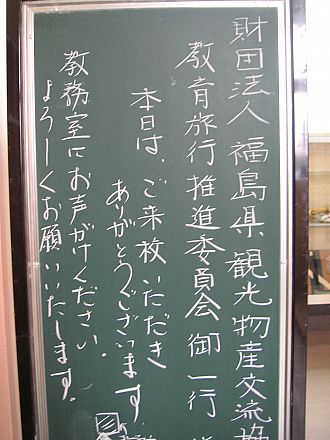 財団法人 福島県観光物産交流協
教育旅行推進委員会 御一行
本日は、ご来校いただき
ありがとうございます
教務室にお声がけください。
よろしくお願いいたします。